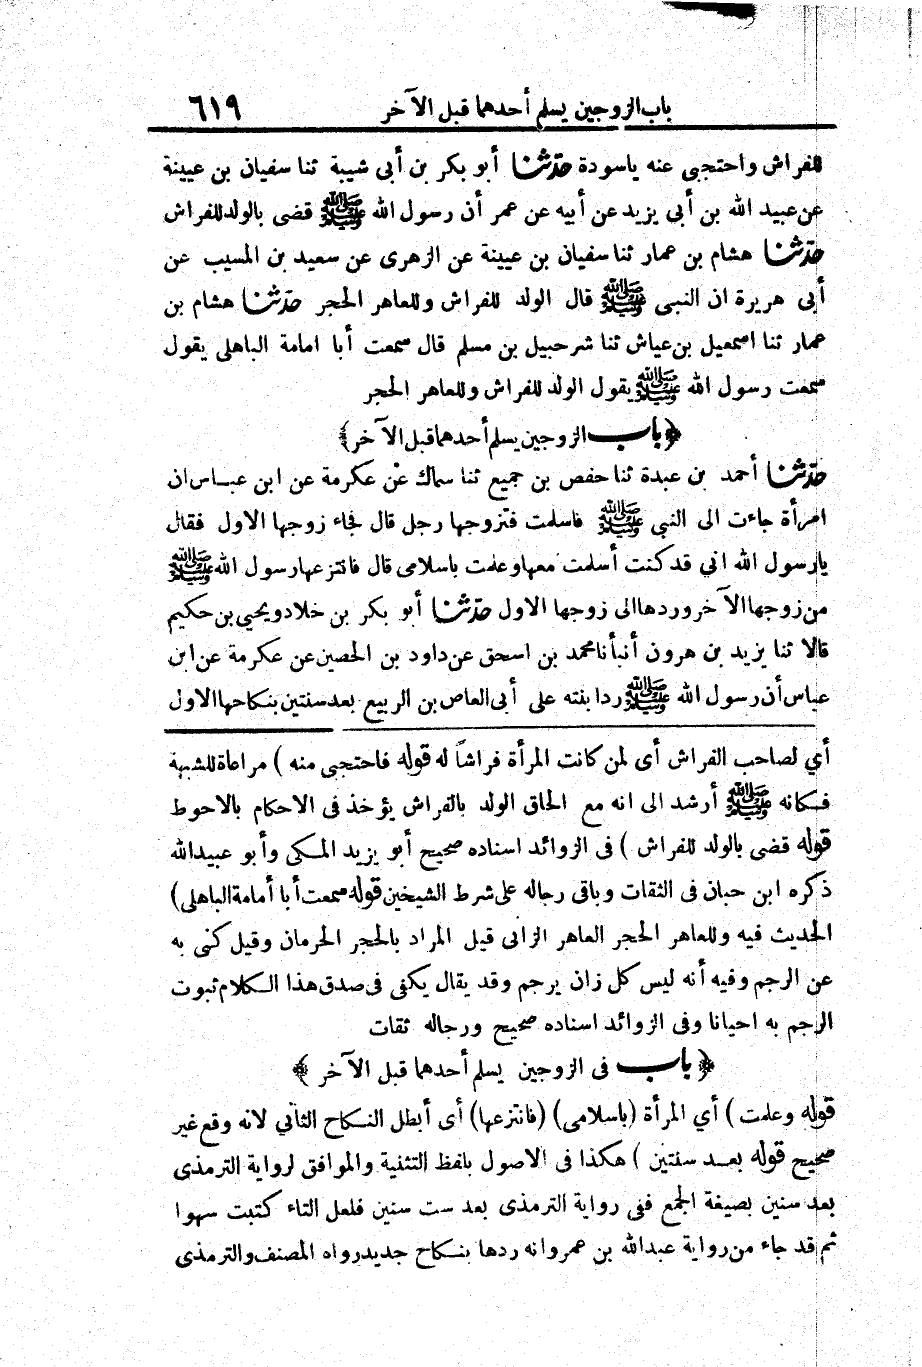 باب الزوجين يسلم أحدهما قبل الآخر ٦١٩
للفراش واحتجبى عنه ياسودة حدّثنا أبو بكر بن أبى شيبة ثنا سفيان بن عيينة
عن عبيد الله بن أبي يزيد عن أبيه عن عمر أن رسول الله ﷺ قضى بالولد للفراش
حدّثنا هشام بن عمار ثنا سفيان بن عيينة عن الزهرى عن سعيد بن المسيب عن
أبى هريرة ان النبى ﷺ قال الولد للفراش وللعاهر الحجر حدّثنا هشام بن
عمار ثنا اسمعيل بن عياش ثنا شرحبيل بن مسلم قال سمعت أبا امامة الباهلى يقول
سمعت رسول الله ﷺ يقول الولد للفراش وللعاهر الحجر
﴿باب الزوجين يسلم أحدهما قبل الآخر﴾
حدّثنا أحمد بن عبدة ثنا حفص بن جميع ثنا سماك عن عكرمة عن ابن عباس ان
امرأة جاءت الى النبى ﷺ فاسلمت فتزوجها رجل قال فجاء زوجها الاول فقال
يارسول الله انى قد كنت أسلمت معها وعلمت باسلامى قال فانتزعها رسول الله ﷺ
من زوجها الآخر وردها الى زوجها الاول حدّثنا أبو بكر بن خلاد ويحيى بن حكيم
قالا ثنا يزيد بن هرون أنبأنا محمد بن اسحق عن داود بن الحصين عن عكرمة عن ابن
عباس أن رسول الله ﷺ رد ابنته على أبى العاص بن الربيع بعد سنتين بنكاحها الاول
أي لصاحب الفراش أى لمن كانت المرأة فراشاً له قوله فاحتجبى منه ) مراعاة للشبهة
فكانه ﷺ أرشد الى انه مع الحاق الولد بالفراش يؤخذ فى الاحكام بالاحوط
قوله قضى بالولد للفراش ) فى الزوائد اسناده صحيح أبو يزيد المكى وأبو عبيد الله
ذكره ابن حبان فى الثقات وباقى رجاله على شرط الشيخين قوله سمعت أبا أمامة الباهلى)
الحديث فيه وللعاهر الحجر العاهر الزانى قيل المراد بالحجر الحرمان وقيل كنى به
عن الرجم وفيه أنه ليس كل زان يرجم وقد يقال يكفى فى صدق هذا الكلام ثبوت
الرجم به احيانا وفى الزوائد اسناده صحيح ورجاله ثقات
﴿باب فى الزوجين يسلم أحدهما قبل الآخر ﴾
قوله وعلمت ) أي المرأة (باسلامى) (فانتزعها) أى أبطل النكاح الثانى لانه وقع غير
صحيح قوله بعد سنتين ) هكذا فى الاصول بلفظ التثنية والموافق لرواية الترمذى
بعد سنين بصيغة الجمع ففى رواية الترمذى بعد ست سنين فلعل التاء كتبت سهوا
ثم قد جاء من رواية عبدالله بن عمرو انه ردها بنكاح جديد رواه المصنف والترمذى